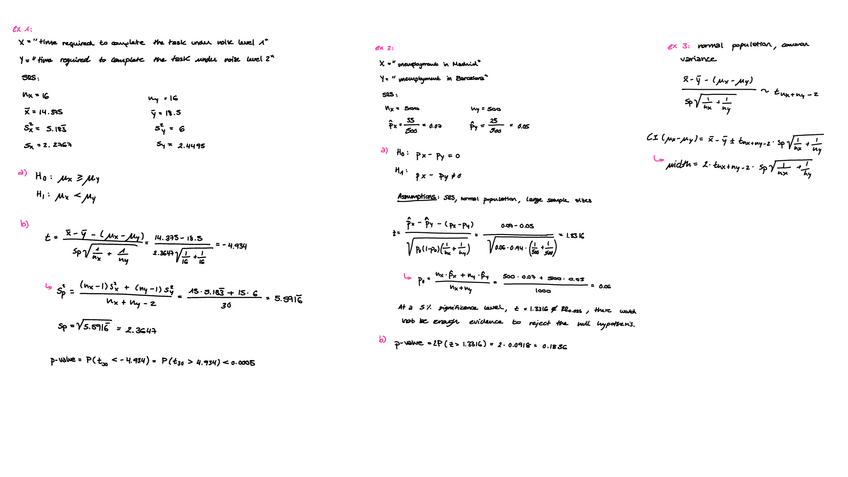 ex 1:
X = "time required to complete the task under noise level 1"
Y = "time required to complete the task under noise level 2"
SRS:
nx = 16 ny = 16
x̄ = 14.375 ȳ = 18.5
s²x = 5.183̄ s²y = 6
sx = 2.2767 sy = 2.4495
a) H₀: μx ≥ μy
H₁: μx < μy
b) t = (x̄ - ȳ - (μx - μy)) / (sp √(1/nx + 1/ny)) = (14.375 - 18.5) / (2.3647 √(1/16 + 1/16)) = -4.934
↳ s²p = ((nx-1) s²x + (ny-1) s²y) / (nx + ny - 2) = (15 · 5.183̄ + 15 · 6) / 30 = 5.5916̄
sp = √5.5916̄ = 2.3647
p-value = P(t₃₀ < -4.934) = P(t₃₀ > 4.934) < 0.0005
ex 2:
X = "unemployment in Madrid"
Y = "unemployment in Barcelona"
SRS:
nx = 500 ny = 500
p̂x = 35/500 = 0.07 p̂y = 25/500 = 0.05
a) H₀: px - py = 0
H₁: px - py ≠ 0
Assumptions: SRS, normal population, large sample sizes
z = (p̂x - p̂y - (px - py)) / √(p₀(1-p₀)(1/nx + 1/ny)) = (0.07 - 0.05) / √(0.06 · 0.94 · (1/500 + 1/500)) = 1.3316
↳ p₀ = (nx · p̂x + ny · p̂y) / (nx + ny) = (500 · 0.07 + 500 · 0.05) / 1000 = 0.06
At a 5% significance level, z = 1.3316 ≯ z0.025, there would
not be enough evidence to reject the null hypothesis.
b) p-value = 2P(z > 1.3316) = 2 · 0.0918 = 0.1836
ex 3: normal population, common
variance
(x̄ - ȳ - (μx - μy)) / (sp √(1/nx + 1/ny)) ~ tnx+ny-2
CI (μx - μy) = x̄ - ȳ ± tnx+ny-2 · sp √(1/nx + 1/ny)
↳ width = 2 · tnx+ny-2 · sp √(1/nx + 1/ny)